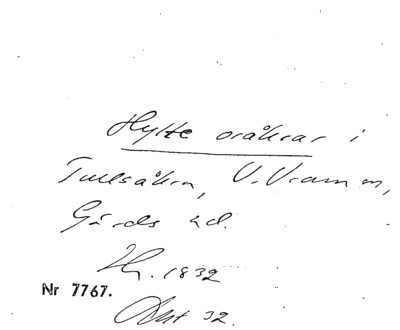 Hylte oråkrar i
Tullsåkra, V. Vram m,
Gärds hd.
Hr. 1832
Nr 7767.
Akt 32.